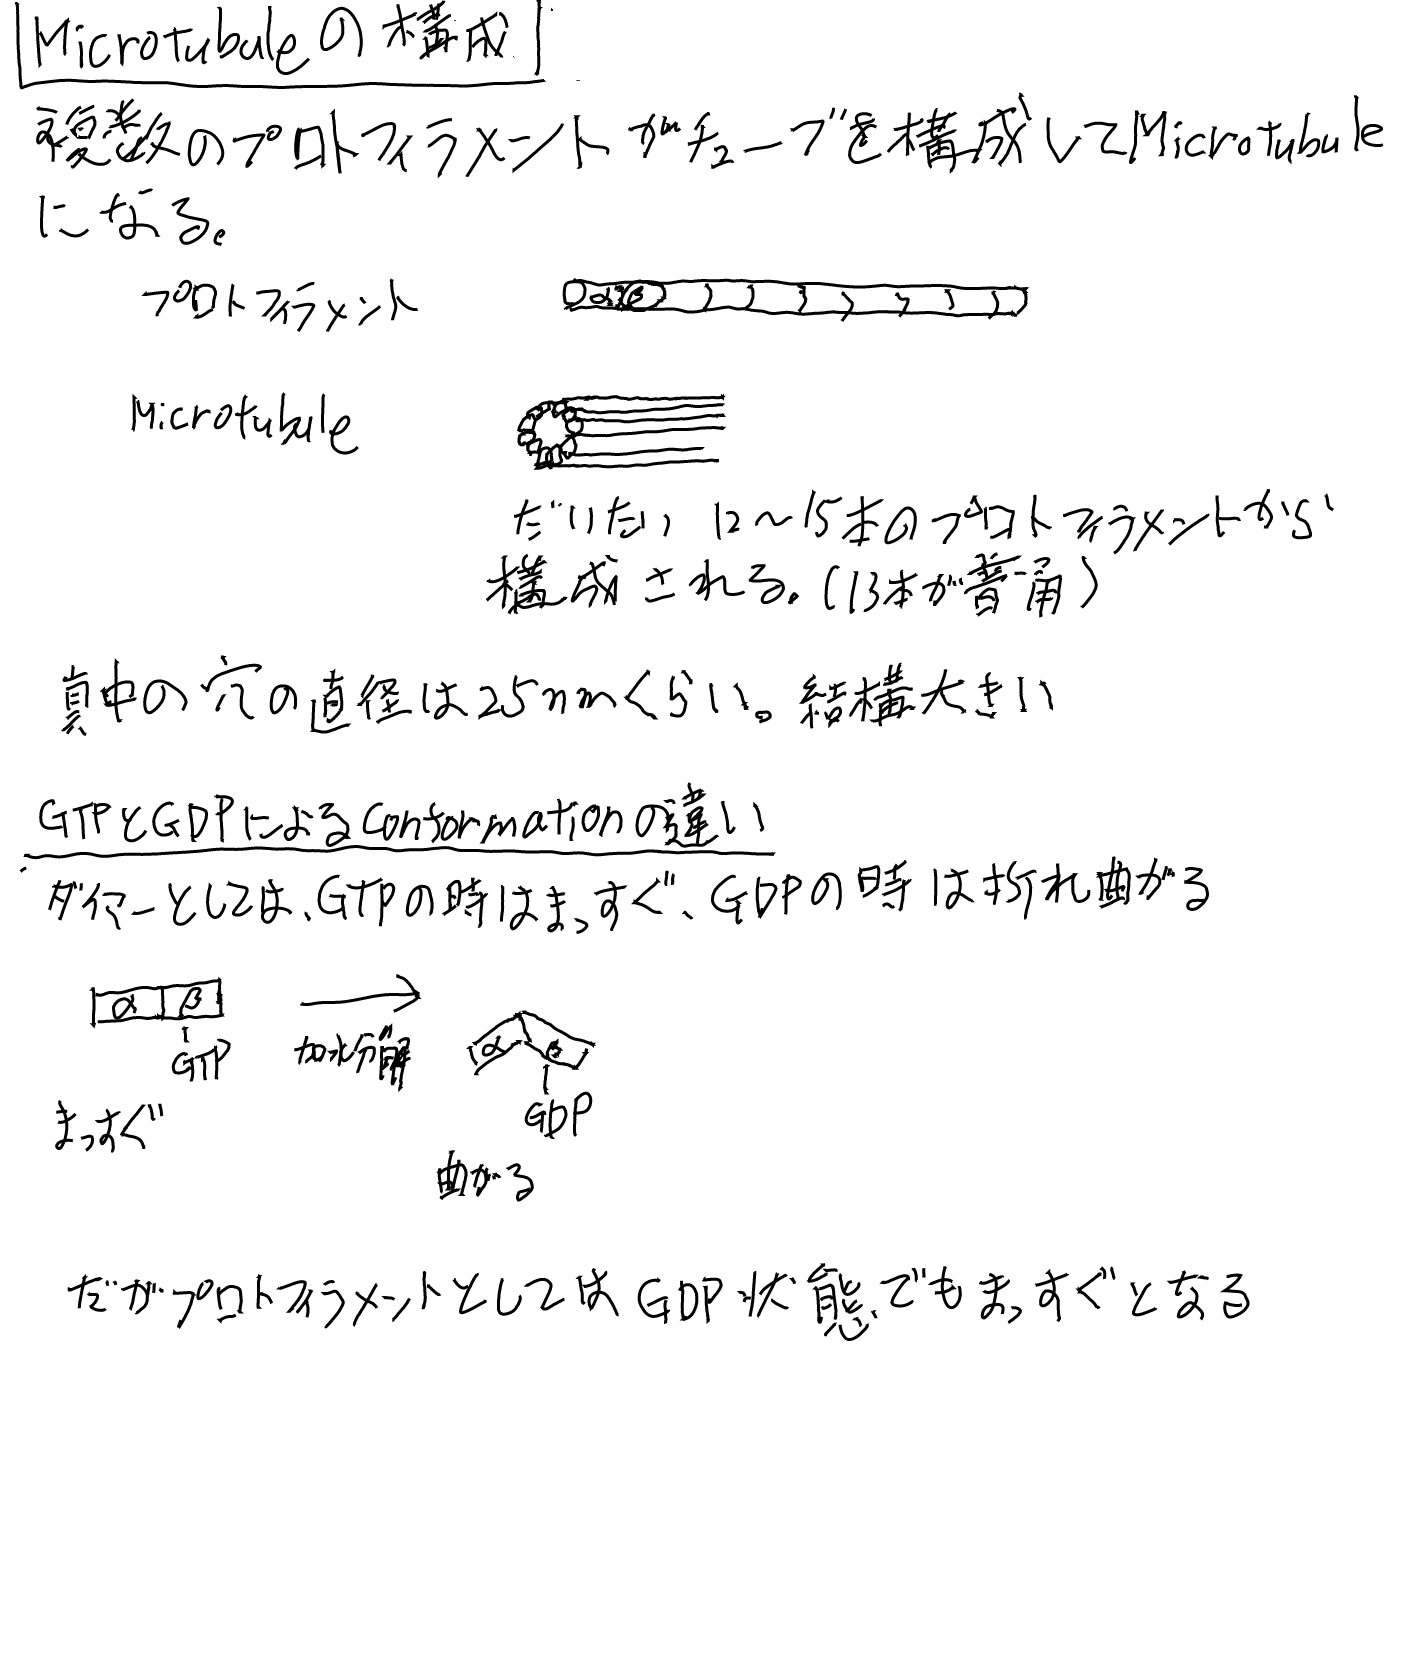 Microtubuleの構成
複数のプロトフィラメントがチューブを構成してMicrotubule
になる。
プロトフィラメント
α β
Microtubule
だいたい 12〜15本のプロトフィラメントから
構成される。(13本が普通)
真中の穴の直径は25nmくらい。結構大きい
GTPとGDPによるConformationの違い
ダイマーとしては、GTPの時はまっすぐ、GDPの時は折れ曲がる
α β
GTP
まっすぐ
加水分解
α β
GDP
曲がる
だがプロトフィラメントとしてはGDP状態でもまっすぐとなる